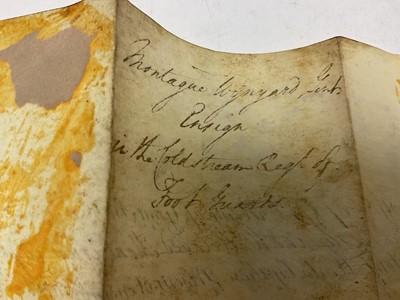 Montague Wynyard Gent
Ensign
in the Coldstream Regt of
Foot Guards.